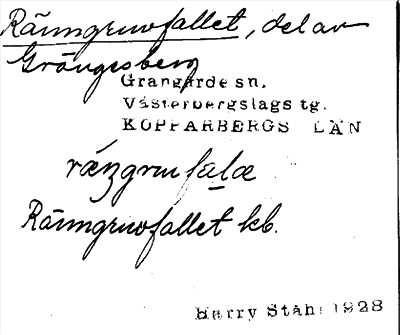 Ränngruvfallet, del av
Grängesberg
Grangärde sn.
Västerbergslags tg.
KOPPARBERGS LÄN
Ränngruvfallet kb.
Harry Ståhl 1928